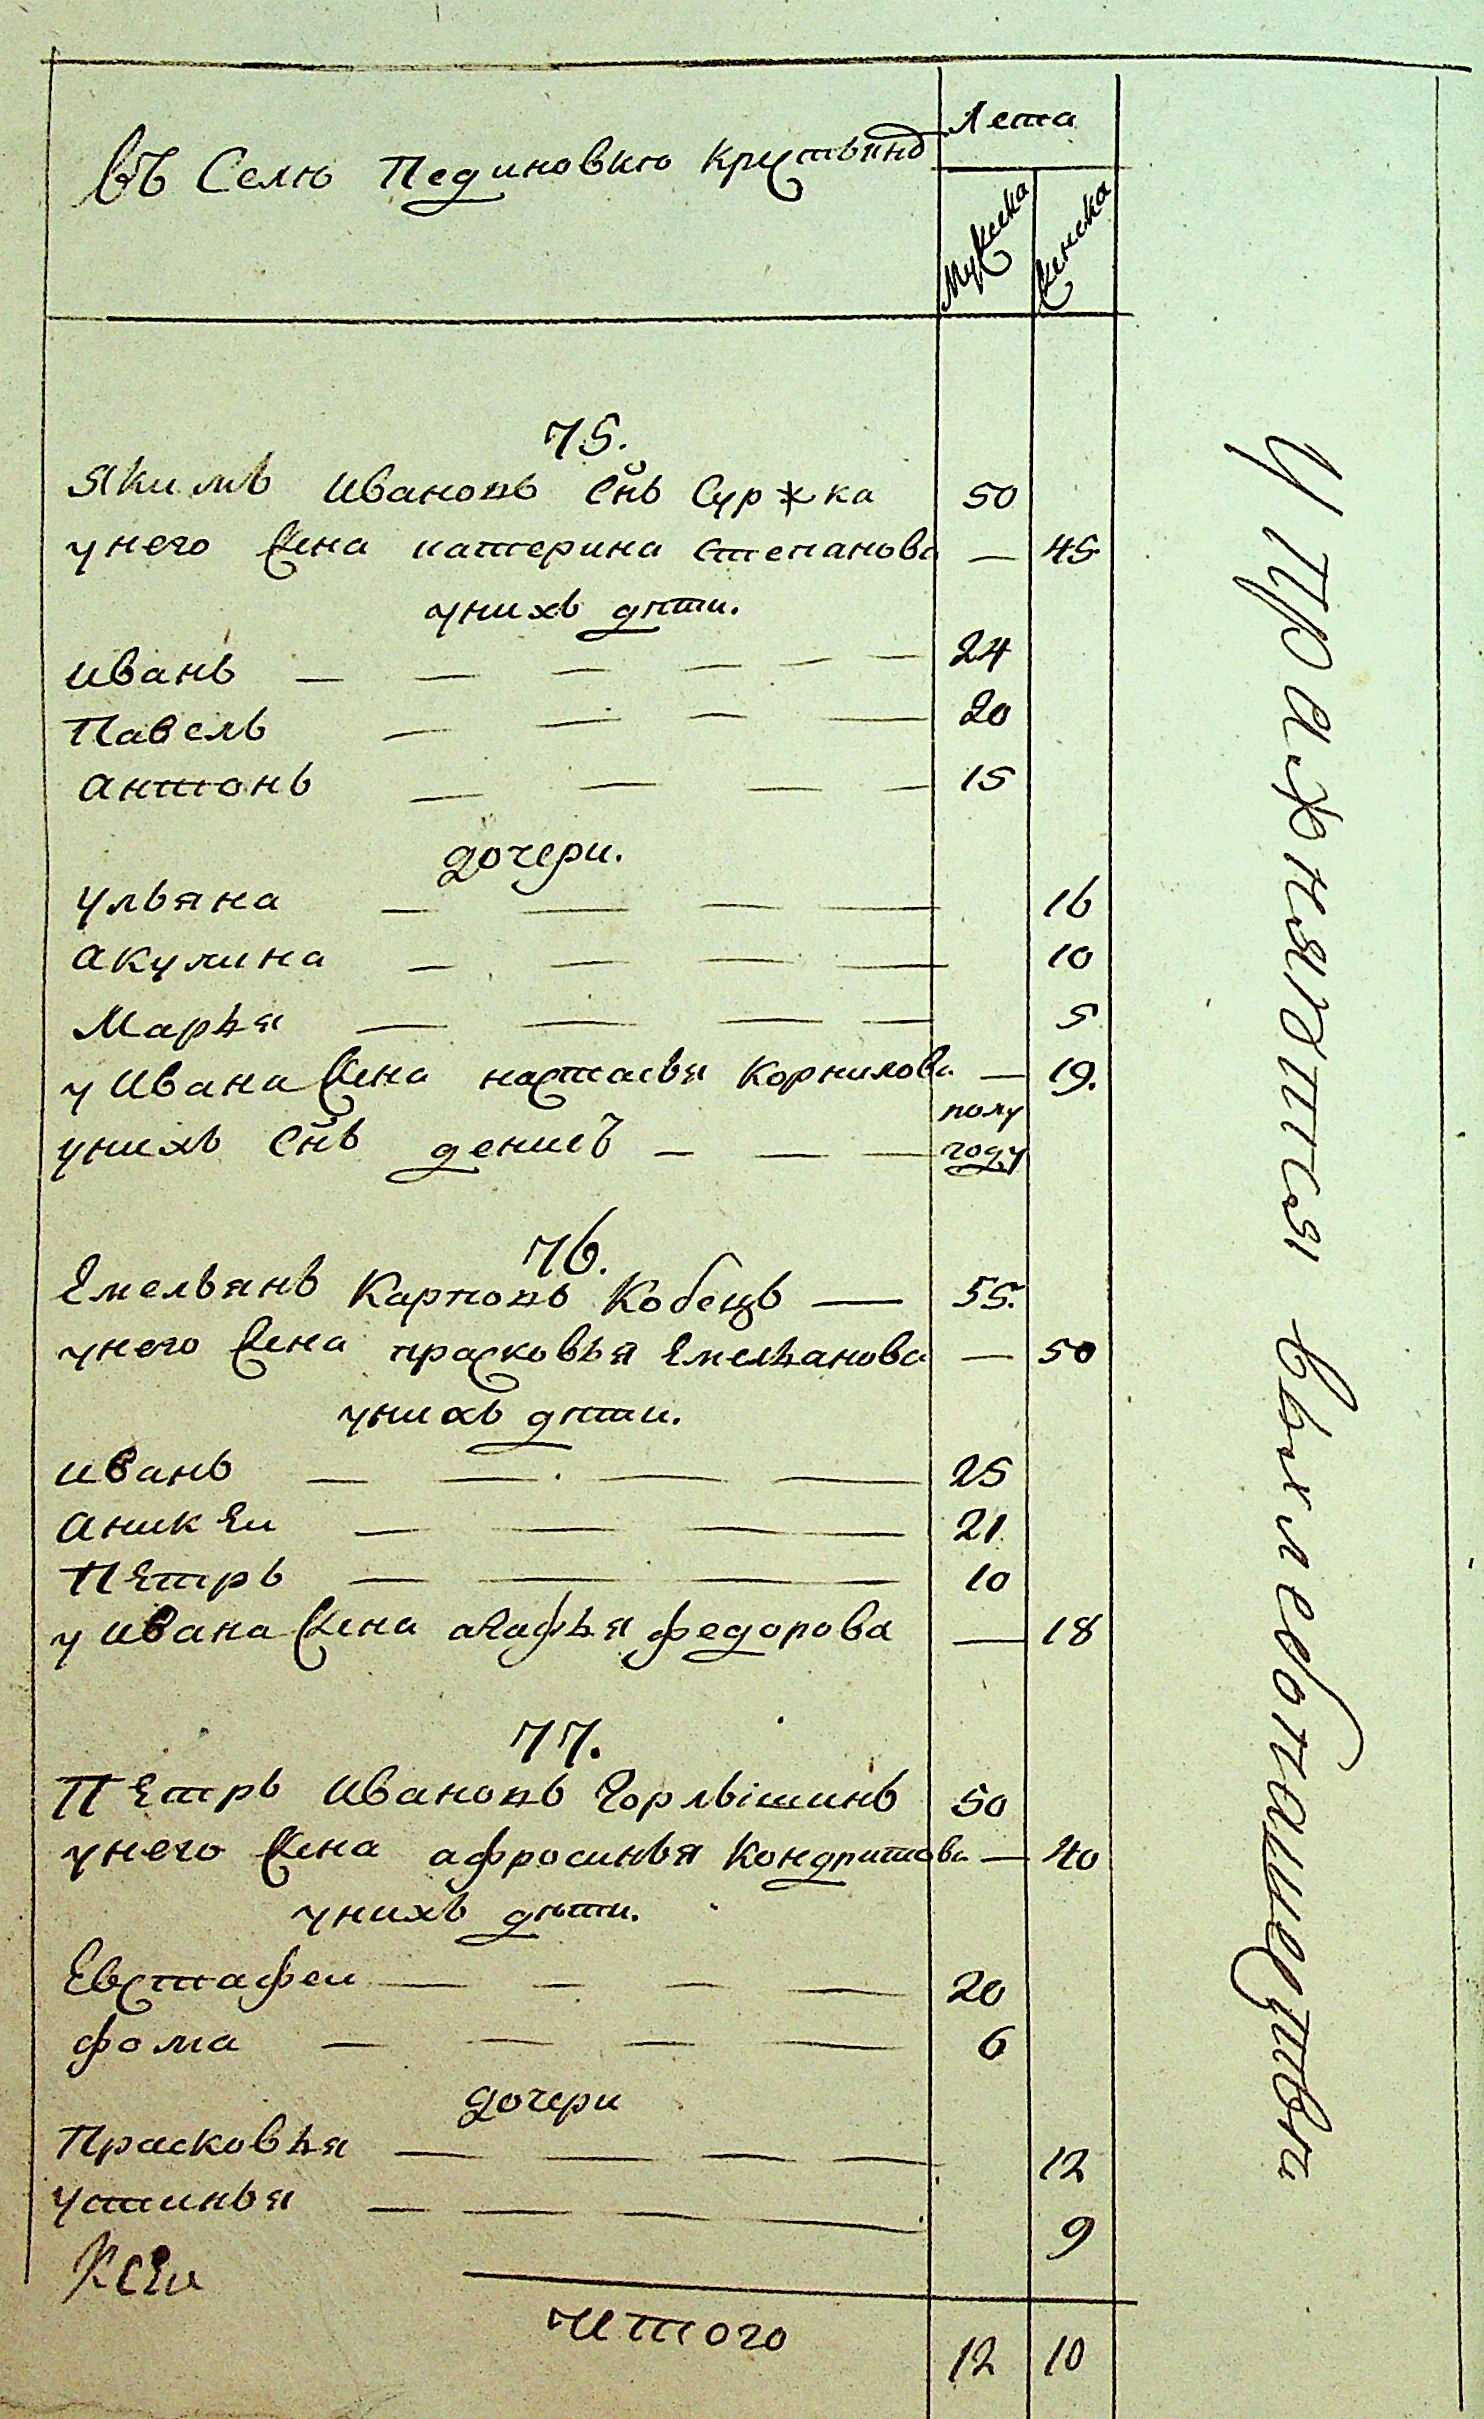 Въ Селѣ Пединовкѣ крестьянъ
Лета
Мужеска
Женска
75.
якимъ Ивановъ Снъ Суржка 50
унего жена катерина степанова — 45
унихъ дѣти.
иванъ — — — — — — 24
Павелъ — — — — 20
антонъ — — — — 15
дочери.
ульяна — — — — 16
акулина — — — — 10
Марья — — — — 5
у Ивана жена настасья корнилова — 19.
полу
унихъ Снъ денисъ — — — году
76.
Емельянъ Карповъ Кобецъ — 55.
унего жена прасковья Емельянова — 50
унихъ дѣти.
иванъ — — — — 25
аникеи — — — — 21
Петръ — — — — 10
у ивана жена агафья федорова — 18
77.
Петръ Ивановъ Горлышинъ 50
унего жена афросинья Кондратова — 40
унихъ дѣти.
Евстафеи — — — — 20
фома — — — — 6
дочери
Прасковья — — — — 12
устинья — — — — 9
Ксеи
Итого 12 10
Упражняются вхлебопашествѣ